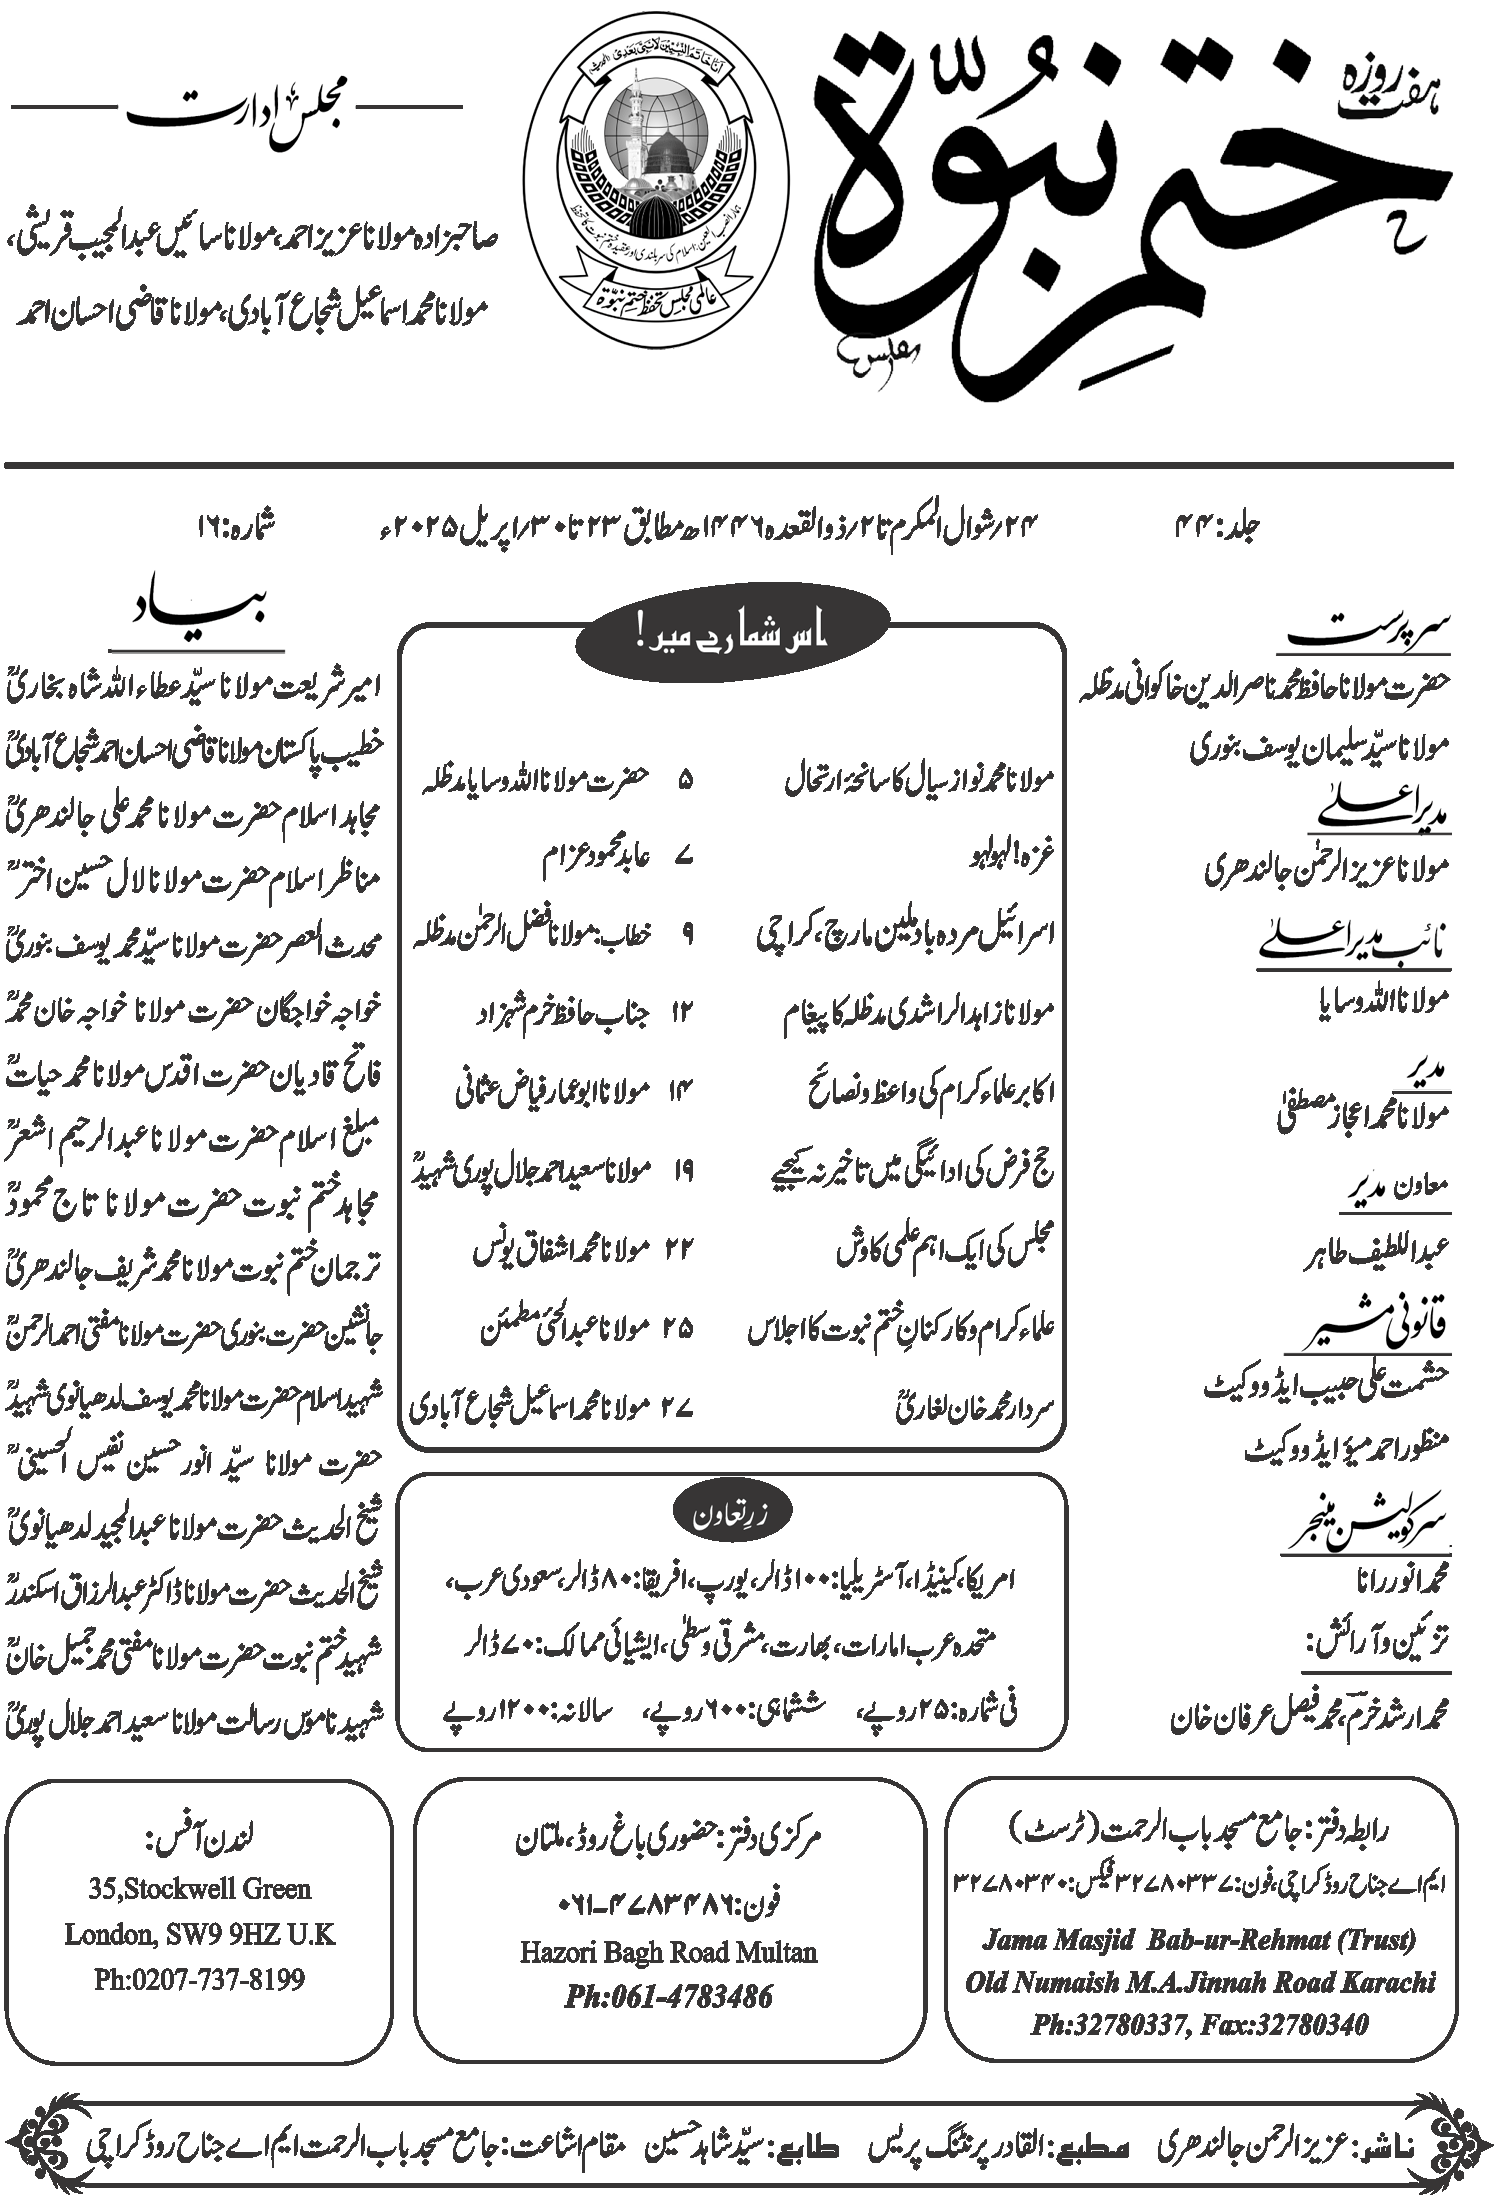 ہفت روزہ
ختم نبوّۃ
مجلس ادارت
صاحبزادہ مولانا عزیز احمد، مولانا سائیں عبدالمجیب قریشی،
مولانا محمد اسماعیل شجاع آبادی، مولانا قاضی احسان احمد
اَنَا خَاتَمُ النَّبِیّٖنَ لَا نَبِیَّ بَعْدِیْ
ہمارا نصب العین: اسلام کی سربلندی اور عقیدہ ختم نبوت کا تحفظ
عالمی مجلس تحفظ ختم نبوّۃ
جلد: ۴۴
۲۴/شوال المکرم تا ۲/ذوالقعدہ ۱۴۴۶ھ مطابق ۲۳ تا ۳۰/اپریل ۲۰۲۵ء
شمارہ: ۱۶
سرپرست
حضرت مولانا حافظ محمد ناصر الدین خاکوانی مدظلہ
مولانا سیّد سلیمان یوسف بنوری
مدیر اعلیٰ
مولانا عزیز الرحمٰن جالندھری
نائب مدیر اعلیٰ
مولانا اللہ وسایا
مدیر
مولانا محمد اعجاز مصطفیٰ
معاون مدیر
عبداللطیف طاہر
قانونی مشیر
حشمت علی حبیب ایڈووکیٹ
منظور احمد میؤ ایڈووکیٹ
سرکولیشن مینجر
محمد انور رانا
تزئین و آرائش:
محمد ارشد خرم، محمد فیصل عرفان خان
اس شمارے میں!
مولانا محمد نواز سیال کا سانحۂ ارتحال ۵ حضرت مولانا اللہ وسایا مدظلہ
غزہ! لہو لہو ۷ عابد محمود عزام
اسرائیل مردہ باد ملین مارچ، کراچی ۹ خطاب: مولانا فضل الرحمٰن مدظلہ
مولانا زاہد الراشدی مدظلہ کا پیغام ۱۲ جناب حافظ خرم شہزاد
اکابر علماء کرام کی واعظ و نصائح ۱۴ مولانا ابو عمار فیاض عثمانی
حج فرض کی ادائیگی میں تاخیر نہ کیجیے ۱۹ مولانا سعید احمد جلال پوری شہیدؒ
مجلس کی ایک اہم علمی کاوش ۲۲ مولانا محمد اشفاق یونس
علماء کرام و کارکنانِ ختم نبوت کا اجلاس ۲۵ مولانا عبدالحئی مطمئن
سردار محمد خان لغاریؒ ۲۷ مولانا محمد اسماعیل شجاع آبادی
زرِتعاون
امریکا، کینیڈا، آسٹریلیا: ۱۰۰ ڈالر، یورپ، افریقا: ۸۰ ڈالر، سعودی عرب،
متحدہ عرب امارات، بھارت، مشرقِ وسطیٰ، ایشیائی ممالک: ۷۰ ڈالر
فی شمارہ: ۲۵ روپے، ششماہی: ۶۰۰ روپے، سالانہ: ۱۲۰۰ روپے
بیاد
امیر شریعت مولانا سیّد عطاء اللہ شاہ بخاریؒ
خطیب پاکستان مولانا قاضی احسان احمد شجاع آبادیؒ
مجاہد اسلام حضرت مولانا محمد علی جالندھریؒ
مناظر اسلام حضرت مولانا لال حسین اخترؒ
محدث العصر حضرت مولانا سیّد محمد یوسف بنوریؒ
خواجہ خواجگان حضرت مولانا خواجہ خان محمدؒ
فاتح قادیان حضرت اقدس مولانا محمد حیاتؒ
مبلغ اسلام حضرت مولانا عبدالرحیم اشعرؒ
مجاہد ختم نبوت حضرت مولانا تاج محمودؒ
ترجمان ختم نبوت مولانا محمد شریف جالندھریؒ
جانشین حضرت بنوری حضرت مولانا مفتی احمد الرحمنؒ
شہید اسلام حضرت مولانا محمد یوسف لدھیانوی شہیدؒ
حضرت مولانا سیّد انور حسین نفیس الحسینیؒ
شیخ الحدیث حضرت مولانا عبدالمجید لدھیانویؒ
شیخ الحدیث حضرت مولانا ڈاکٹر عبدالرزاق اسکندرؒ
شہید ختم نبوت حضرت مولانا مفتی محمد جمیل خانؒ
شہید ناموس رسالت مولانا سعید احمد جلال پوریؒ
رابطہ دفتر: جامع مسجد باب الرحمت (ٹرسٹ)
ایم اے جناح روڈ کراچی، فون: ۳۲۷۸۰۳۳۷ فیکس: ۳۲۷۸۰۳۴۰
Jama Masjid Bab-ur-Rehmat (Trust)
Old Numaish M.A.Jinnah Road Karachi
Ph:32780337, Fax:32780340
مرکزی دفتر: حضوری باغ روڈ، ملتان
فون: ۰۶۱-۴۷۸۳۴۸۶
Hazori Bagh Road Multan
Ph:061-4783486
لندن آفس:
35,Stockwell Green
London, SW9 9HZ U.K
Ph:0207-737-8199
ناشر: عزیز الرحمن جالندھری مطبع: القادر پرنٹنگ پریس طابع: سیّد شاہد حسین مقام اشاعت: جامع مسجد باب الرحمت ایم اے جناح روڈ کراچی